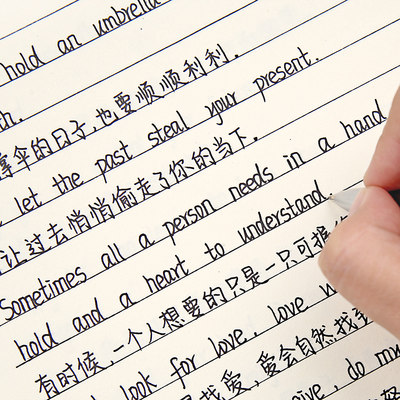 hold an umbrella
伞的日子,也要顺顺利利.
let the past steal your present.
让过去悄悄偷走了你的当下.
Sometimes all a person needs is a hand
hold and a heart to understand.
有时候,一个人想要的只是一只可握
look for love, love
爱,爱会自然找到
do